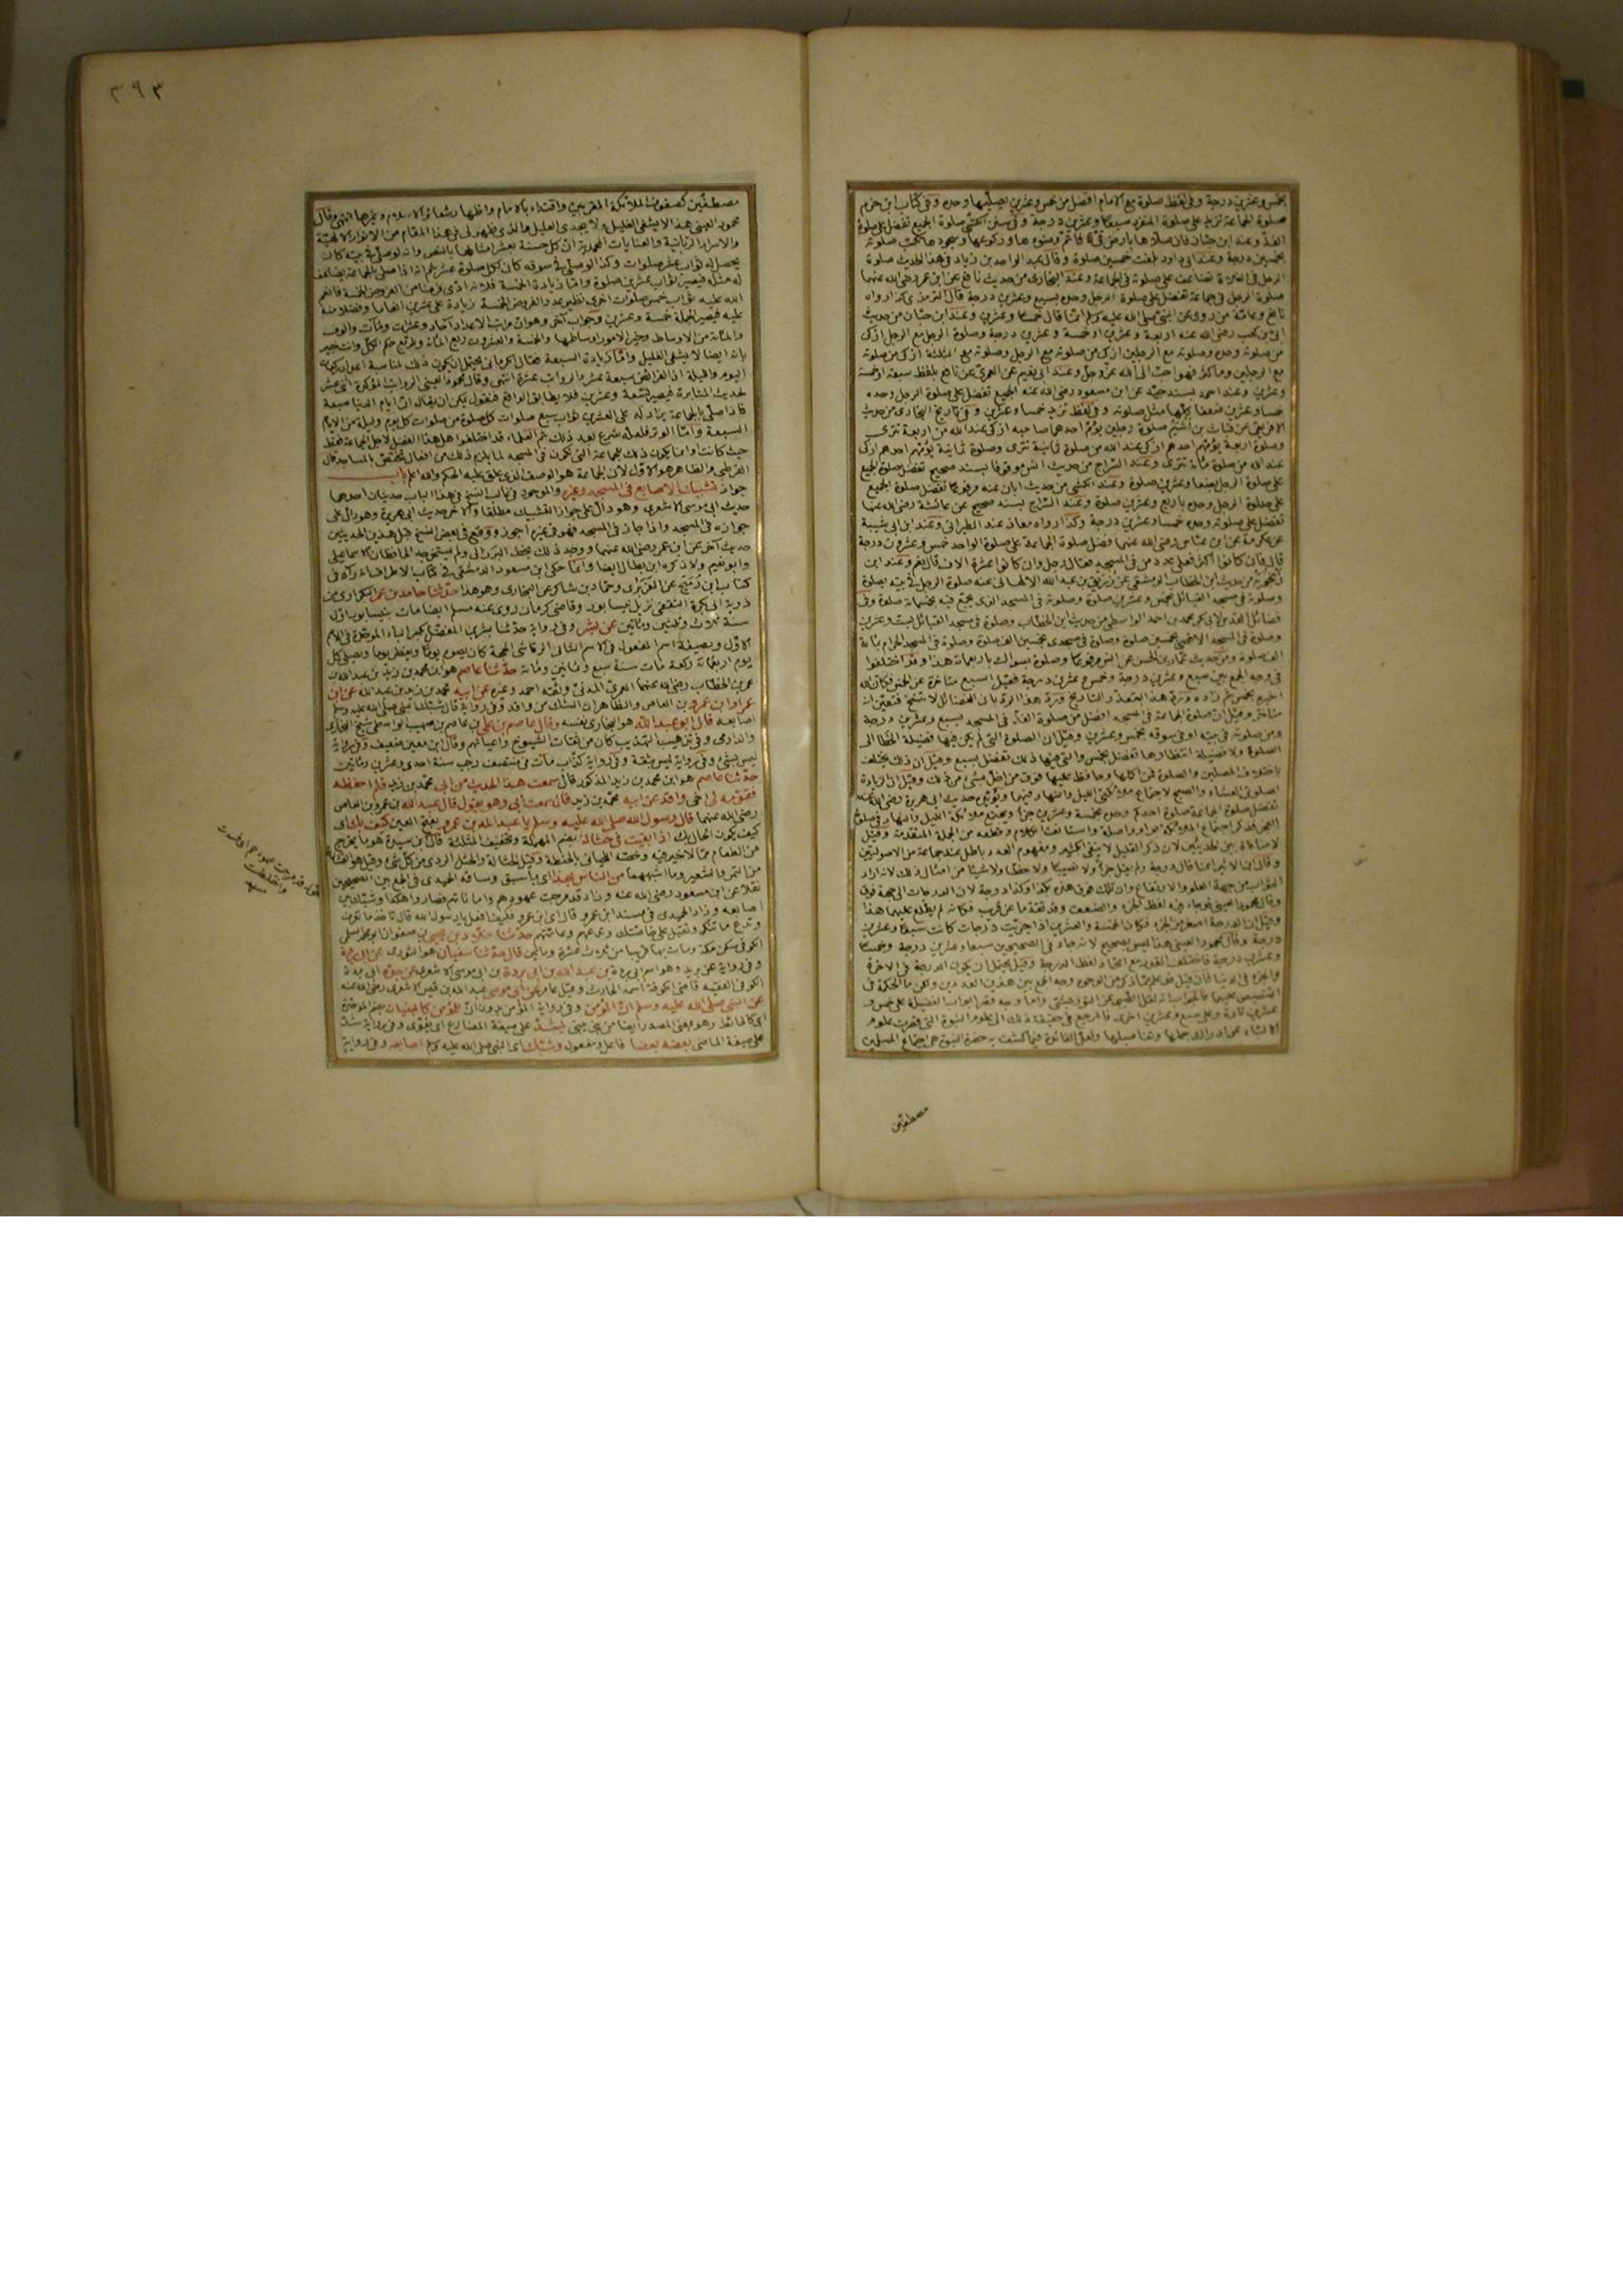 بخمس وعشرين درجة وفي لفظ صلوة مع الامام افضل من خمس وعشرين يصليها وحده وفي كتاب ابن حزم
صلوة الجماعة تزيد على صلوة المنفرد سبعا وعشرين درجة وفي سنن الكشي صلوة الجميع تفضل على صلوة
الفذ وعند ابن حبان فان صلاها بارض قي فاتم وضوءها وركوعها وسجودها تكتب صلوته
بخمسين درجة وعند ابي داود بلغت خمسين صلوة وقال عبد الواحد بن زياد في هذا الحديث صلوة
الرجل في الفلاة تضاعف على صلوته في الجماعة وعند البخاري من حديث نافع عن ابن عمر رضي الله عنهما
صلوة الرجل في جماعة تفضل على صلوة الرجل وحده بسبع وعشرين درجة قال الترمذي كذا رواه
نافع وعامة من روى عن النبي صلى الله عليه وسلم انما قال خمسا وعشرين وعند ابن حبان من حديث
ابي بن كعب رضي الله عنه اربعة وعشرين او خمسة وعشرين درجة وصلوة الرجل مع الرجل ازكى
من صلوته وحده وصلوته مع الرجلين ازكى من صلوته مع الرجل وصلوته مع الثلثة ازكى من صلوته
مع الرجلين وما كثر فهو احب الى الله عز وجل وعند ابي نعيم عن العمري عن نافع بلفظ سبعة او خمسة
وعشرين وعند احمد بسند جيد عن ابن مسعود رضي الله عنه الجميع تفضل على صلوة الرجل وحده
خمسا وعشرين ضعفا كلها مثل صلوته وفي لفظ تزيد خمسا وعشرين وفي تاريخ البخاري من حديث
الافريقي عن قباث بن اشيم صلوة رجلين يؤم احدهما صاحبه ازكى عند الله من اربعة تترى
وصلوة اربعة يؤمهم احدهم ازكى عند الله من صلوة ثمانية تترى وصلوة ثمانية يؤمهم احدهم ازكى
عند الله من صلوة مائة تترى وعند السراج من حديث انس موقوفا بسند صحيح تفضل صلوة الجميع
على صلوة الرجل بضعا وعشرين صلوة وعند الكشي من حديث ابان عنه مرفوعا تفضل صلوة الجميع
على صلوة الرجل وحده باربع وعشرين صلوة وعند السراج بسند صحيح عن عائشة رضي الله عنها
تفضل على صلوته وحده خمسا وعشرين درجة وكذا رواه معاذ عند الطبراني وعند ابن ابي شيبة
عن عكرمة عن ابن عباس رضي الله عنهما فضل صلوة الجماعة على صلوة الواحد خمس وعشرون درجة
قال فان كانوا اكثر فعلى عدد من في المسجد فقال رجل وان كانوا عشرة الاف قال نعم وعند ابن
زنجويه من حديث ابن الخطاب الدمشقي عن زريق بن عبد الله الالهاني عنه صلوة الرجل في بيته بصلوة
وصلوته في مسجد القبائل بخمس وعشرين صلوة وصلوته في المسجد الذي يجمع فيه بخمسمائة صلوة وفي
فضائل القدس لابي بكر محمد بن احمد الواسطي من حديث ابن الخطاب وصلوة في مسجد القبائل بست وعشرين
وصلوة في المسجد الاقصى بخمسين صلوة وصلوة في مسجدي بخمسين الف صلوة وصلوة في المسجد الحرام بمائة
الف صلوة ومن حديث عمار بن الحسن عن انس مرفوعا وصلوة بسواك باربعمائة هذا وقد اختلفوا
في وجه الجمع بين سبع وعشرين درجة وخمس وعشرين درجة فقيل السبع متاخرة عن الخمس فكان الله
اخبره بخمس ثم زاده ورد هذا بتعذر التاريخ ورد هذا الرد بان الفضائل لا تنسخ فتعين انه
متاخر وقيل ان صلوة الجماعة في المسجد افضل من صلوة الفذ في المسجد بسبع وعشرين درجة
ومن صلوته في بيته او في سوقه بخمس وعشرين وقيل ان الصلوة التي لم يكن فيها فضيلة الخطا الى
الصلوة ولا فضيلة انتظارها تفضل بخمس والتي فيها ذلك تفضل بسبع وقيل ان ذلك يختلف
باختلاف المصلين والصلوة فمن اكملها وحافظ عليها فوق من اخل بشئ من ذلك وقيل ان الزيادة
لصلوتي العشاء والصبح لاجتماع ملائكتي الليل والنهار فيهما ويؤيد حديث ابي هريرة رضي الله عنه
تفضل صلوة الجماعة صلوة احدكم وحده بخمسة وعشرين جزأ ويجتمع ملائكة الليل والنهار في صلوة
الفجر فذكر اجتماع الملائكة بواو واصلة واستانف الكلام وقطعه من الجملة المتقدمة وقيل
لا منافاة بين الحديثين لان ذكر القليل لا ينفي الكثير ومفهوم العدد باطل عند جماعة من الاصوليين
وقال ابن الاثير انما قال درجة ولم يقل جزأ ولا نصيبا ولا حظا ولا شيئا من امثال ذلك لانه اراد
الثواب من جهة العلو والارتفاع وان تلك فوق هذه بكذا وكذا درجة لان الدرجات الى جهة فوق
وقال محمود العيني قد جاء فيه لفظ الجزء والضعف وقد تقدما عن قريب فكانه لم يطلع عليهما هذا
وقيل ان الدرجة اصغر من الجزء فكان الخمسة والعشرين اذا جزئت درجات كانت سبعا وعشرين
درجة وقال محمود العيني هذا ليس بصحيح لانه جاء في الصحيحين سبعا وعشرين درجة وخمسا
وعشرين درجة فاختلف القدر مع اتحاد لفظ الدرجة وقيل يحتمل ان يكون الدرجة في الاخرة
والجزء في الدنيا فان قيل قد علم ما ذكر من الوجوه وجه الجمع بين هذين العددين ولكن ما الحكمة في
التنصيص عليهما فالجواب انه نقل الطيبي عن التوربشتي واما وجه قصر ابواب الفضيلة على خمس و
عشرين تارة وعلى سبع وعشرين اخرى فالمرجع في حقيقة ذلك الى علوم النبوة التي قصرت علوم
الالباء عن ادراك جملها وتفاصيلها ولعل الفائدة فيما كشف به حضرة النبوة هي اجتماع المسلمين
مصطفين
٣٩٣
مصطفين كصفوف الملائكة المقربين واقتداء بالامام واظهار شعائر الاسلام وغيرها انتهى وقال
محمود العيني هذا لا يشفي الغليل ولا يجدي العليل والذي ظهر لي في هذا المقام من الانوار الالهية
والاسرار الربانية والعنايات المحمدية ان كل حسنة بعشر امثالها بالنص وانه لو صلى في بيته كان
يحصل له ثواب عشر صلوات وكذا لو صلى في سوقه كان كل صلوة عشر ثم انه اذا صلى بالجماعة يضاعف
له مثله فيصير ثواب عشرين صلوة واما زيادة الخمسة فلانه ادى فرضا من الفروض الخمسة فانعم
الله عليه ثواب خمس صلوات اخرى نظير عدد الفروض الخمسة زيادة على عشرين انعاما وفضلا منه
عليه فيصير الجملة خمسة وعشرين وجواب آخر وهو ان مراتب الاعداد آحاد وعشرات ومآت والوف
والمائة من الاوساط وخير الامور اوساطها والخمسة والعشرون ربع المائة وللربع حكم الكل وانت خبير
بانه ايضا لا يشفي الغليل واما زيادة السبعة فقال الكرماني يحتمل ان يكون ذلك لمناسبة اعداد ركعات
اليوم والليلة اذ الفرائض سبعة عشر والرواتب عشرة انتهى وقال محمود العيني الرواتب المؤكدة اثنى عشر
لحديث المثابرة فيصير تسعة وعشرين فلا يطابق الواقع فنقول يمكن ان يقال ان ايام الدنيا سبعة
فاذا صلى بالجماعة يزاد له على العشرين ثواب سبع صلوات كل صلوة من صلوات كل يوم وليلة من الايام
السبعة واما الوتر فلعله شرع بعد ذلك ثم العلماء قد اختلفوا هل هذا الفضل لاجل الجماعة فقط
حيث كانت او انما يكون ذلك للجماعة التي تكون في المسجد لما يلزم ذلك من افعال تختص بالمساجد قال
القرطبي والظاهر هو الاول لان الجماعة هو الوصف الذي علق عليه الحكم والله اعلم باب
جواز تشبيك الاصابع في المسجد وغيره والموجود في غالب النسخ في هذا الباب حديثان احدهما
حديث ابي موسى الاشعري وهو دال على جواز التشبيك مطلقا والآخر حديث ابي هريرة وهو دال على
جوازه في المسجد واذا جاز في المسجد فهو في غيره اجوز ووقع في بعض النسخ قبل هذين الحديثين
حديث آخر عن ابن عمر رضي الله عنهما ووجد ذلك بخط البرزالي ولم يستخرجه الحافظان الاسماعيلي
وابو نعيم ولا ذكره ابن بطال ايضا وانما حكى ابن مسعود الدمشقي في كتاب الاطراف انه رآه في
كتاب ابن رميح عن الفربري وحماد بن شاكر عن البخاري وهو هذا حدثنا حامد بن عمر البكراوي من
ذرية ابي بكرة الثقفي نزيل نيسابور وقاضي كرمان روى عنه مسلم ايضا مات بنيسابور اول
سنة ثلاث وثلثين ومائتين عن بشر وفي رواية حدثنا بشر بن المفضل بكسر الباء الموحدة في الاسم
الاول وبصيغة اسم المفعول في الاسم الثاني الرقاشي الحجة كان يصوم يوما ويفطر يوما ويصلي كل
يوم اربعمائة ركعة مات سنة سبع وثمانين ومائة حدثنا عاصم هو ابن محمد بن زيد بن عبد الله بن
عمر بن الخطاب رضي الله عنهما العمري المدني وثقه احمد وغيره عن ابيه محمد بن زيد بن عبد الله عن ابن
عمر او ابن عمرو بن العاص والظاهر ان الشك من واقد وفي رواية قال شبك النبي صلى الله عليه وسلم
اصابعه قال ابو عبد الله هو البخاري نفسه وقال عاصم بن علي بن عاصم بن صهيب الواسطي شيخ البخاري
والدارمي وفي تذهيب التهذيب كان من ثقات الشيوخ واعيانهم وقال ابن معين ضعيف وفي رواية
ليس بشئ وفي رواية ليس بثقة وفي رواية كذاب مات في منتصف رجب سنة احدى وعشرين ومائتين
حدثنا عاصم هو ابن محمد بن زيد المذكور قال سمعت هذا الحديث من ابي محمد بن زيد فلم احفظه
فقومه لي اخي واقد عن ابيه محمد بن زيد قال سمعت ابي وهو يقول قال عبد الله بن عمرو بن العاص
رضي الله عنهما قال رسول الله صلى الله عليه وسلم يا عبد الله بن عمرو بفتح العين كيف بك اي
كيف يكون الحال بك اذا بقيت في حثالة بضم المهملة وتخفيف المثلثة قال ابن سيده هو ما يخرج
من الطعام مما لا خير فيه وخصه اللحياني بالحنطة وقيل الحثالة والحثل الردي من كل شئ وقيل هو القشارة
من التمر والشعير وما اشبههما من الناس بهذا اي ما سبق وساقه الحميدي في الجمع بين الصحيحين
نقلا عن ابن مسعود رضي الله عنه وزاد قد مرجت عهودهم واماناتهم فصاروا هكذا وشبك بين
اصابعه وزاد الحميدي في مسند ابن عمرو قال اي ابن عمرو فكيف افعل يا رسول الله قال تاخذ ما تعرف
وتدع ما تنكر وتقبل على خاصتك وتدعهم وعامتهم حدثنا خلاد بن يحيى بن صفوان ابو محمد السلمي
الكوفي سكن مكة ومات بها قريبا من ثلاث عشرة ومائتين قال حدثنا سفيان هو الثوري عن ابي بردة
وفي رواية عن بريد وهو اسم ابي بردة بن عبد الله بن ابي بردة بن ابي موسى الاشعري عن جده ابي بردة
الكوفي الفقيه قاضي الكوفة اسمه الحارث وقيل عامر عن ابي موسى عبد الله بن قيس الاشعري رضي الله عنه
عن النبي صلى الله عليه وسلم ان المؤمن وفي رواية المؤمن بدون ان للمؤمن كالبنيان بضم الموحدة
اي كالحائط وهو بمعنى المصدر ايضا من بنى يبني يشد على صيغة المضارع اي يقوى وفي رواية شد
على صيغة الماضي بعضه بعضا فاعل ومفعول وشبك اي النبي صلى الله عليه وسلم اصابعه وفي رواية